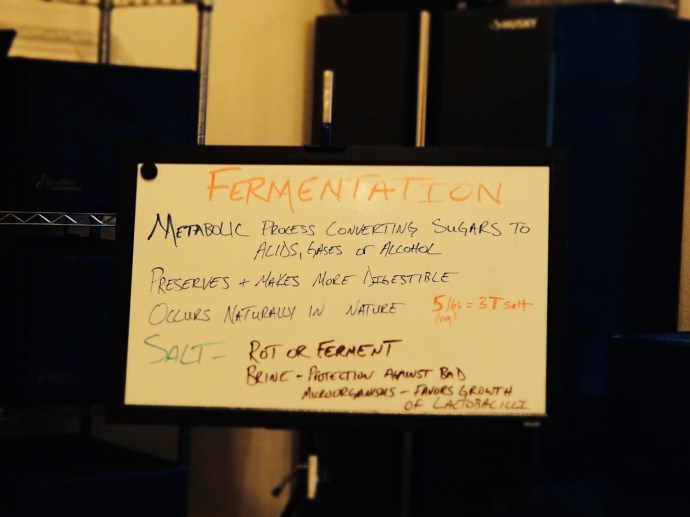 HUSKY
FERMENTATION
METABOLIC PROCESS CONVERTING SUGARS TO
ACIDS, GASES or ALCOHOL
PRESERVES + MAKES MORE DIGESTIBLE
OCCURS NATURALLY IN NATURE
5 lbs = 3T salt
SALT - ROT OR FERMENT
BRINE - PROTECTION AGAINST BAD
MICROORGANISMS - FAVORS GROWTH
OF LACTOBACILLI